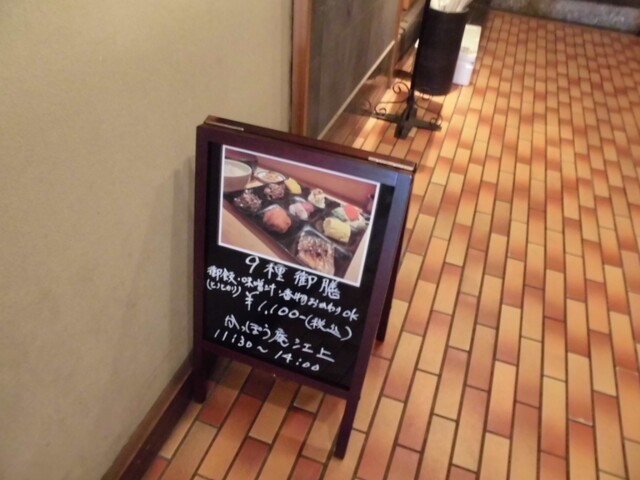 9種御膳
御飯・味噌汁・香物おかわりok
¥1,100-(税込)
かっぽう庵江上
11:30～14:00